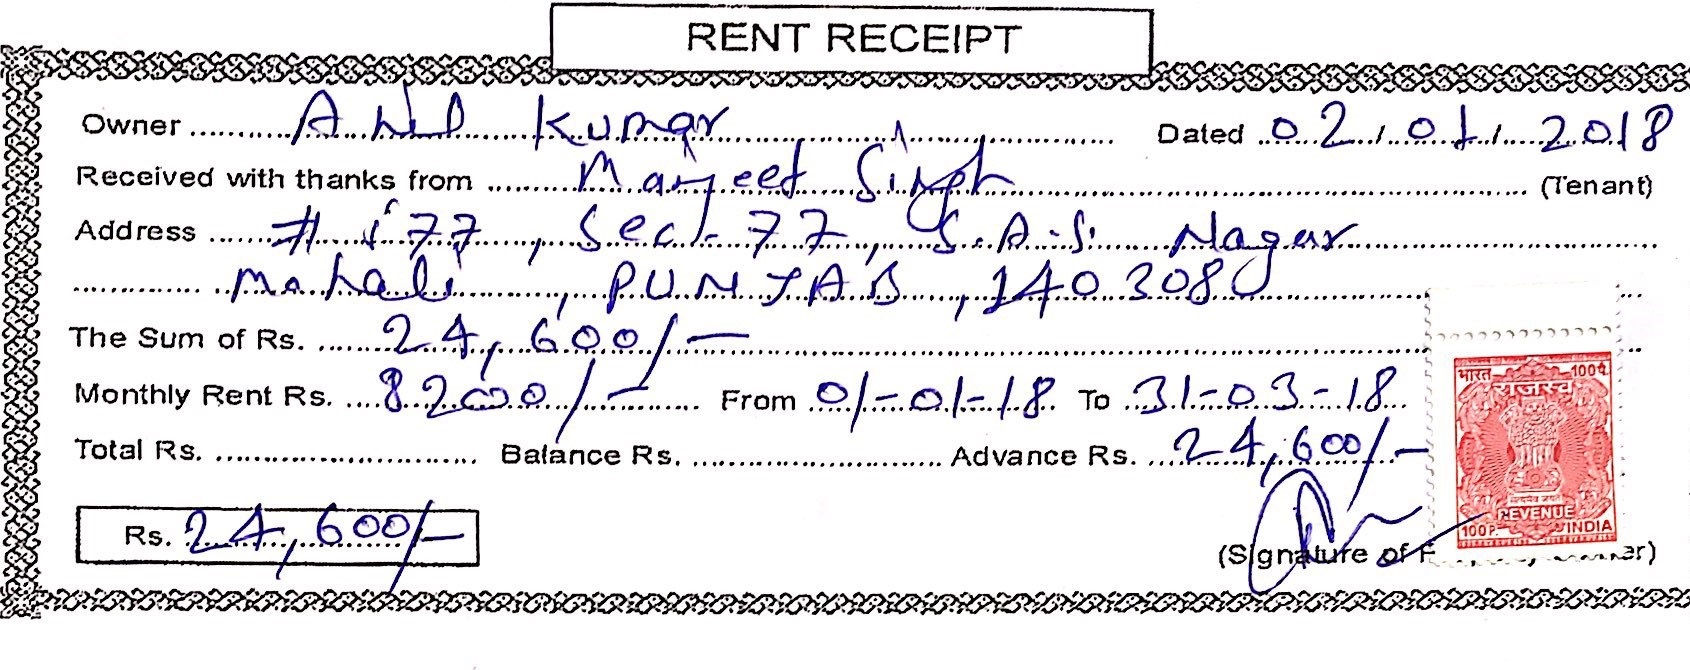 RENT RECEIPT
Owner Anil Kumar Dated 02/01/2018
Received with thanks from Manjeet Singh (Tenant)
Address # 177, Sec-77, S.A.S. Nagar
Mohali, PUNJAB, 140308
The Sum of Rs. 24,600/-
Monthly Rent Rs. 8200/- From 01-01-18 To 31-03-18
Total Rs. Balance Rs. Advance Rs. 24,600/-
Rs. 24,600/-
(Signature of
भारत 100पै.
राजस्व
REVENUE
100P. INDIA